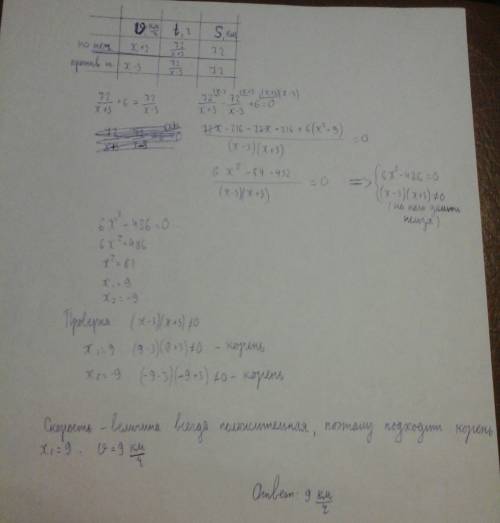 v км/ч t, ч S, км
по теч. x+3 72/x+3 72
против т. x-3 72/x-3 72
72/x+3 + 6 = 72/x-3
72x - 216 - 72x - 216 + 6(x²-9) / (x-3)(x+3) = 0
6x² - 54 - 432 / (x-3)(x+3) = 0 => { 6x² - 486 = 0
(x-3)(x+3) ≠ 0
(на ноль делить
нельзя)
6x² - 486 = 0
6x² = 486
x² = 81
x₁ = 9
x₂ = -9
Проверка (x-3)(x+3) ≠ 0
x₁ = 9 (9-3)(9+3) ≠ 0 - корень
x₂ = -9 (-9-3)(-9+3) ≠ 0 - корень
Скорость - величина всегда положительная, поэтому подходит корень
x₁ = 9. v = 9 км/ч
Ответ: 9 км/ч